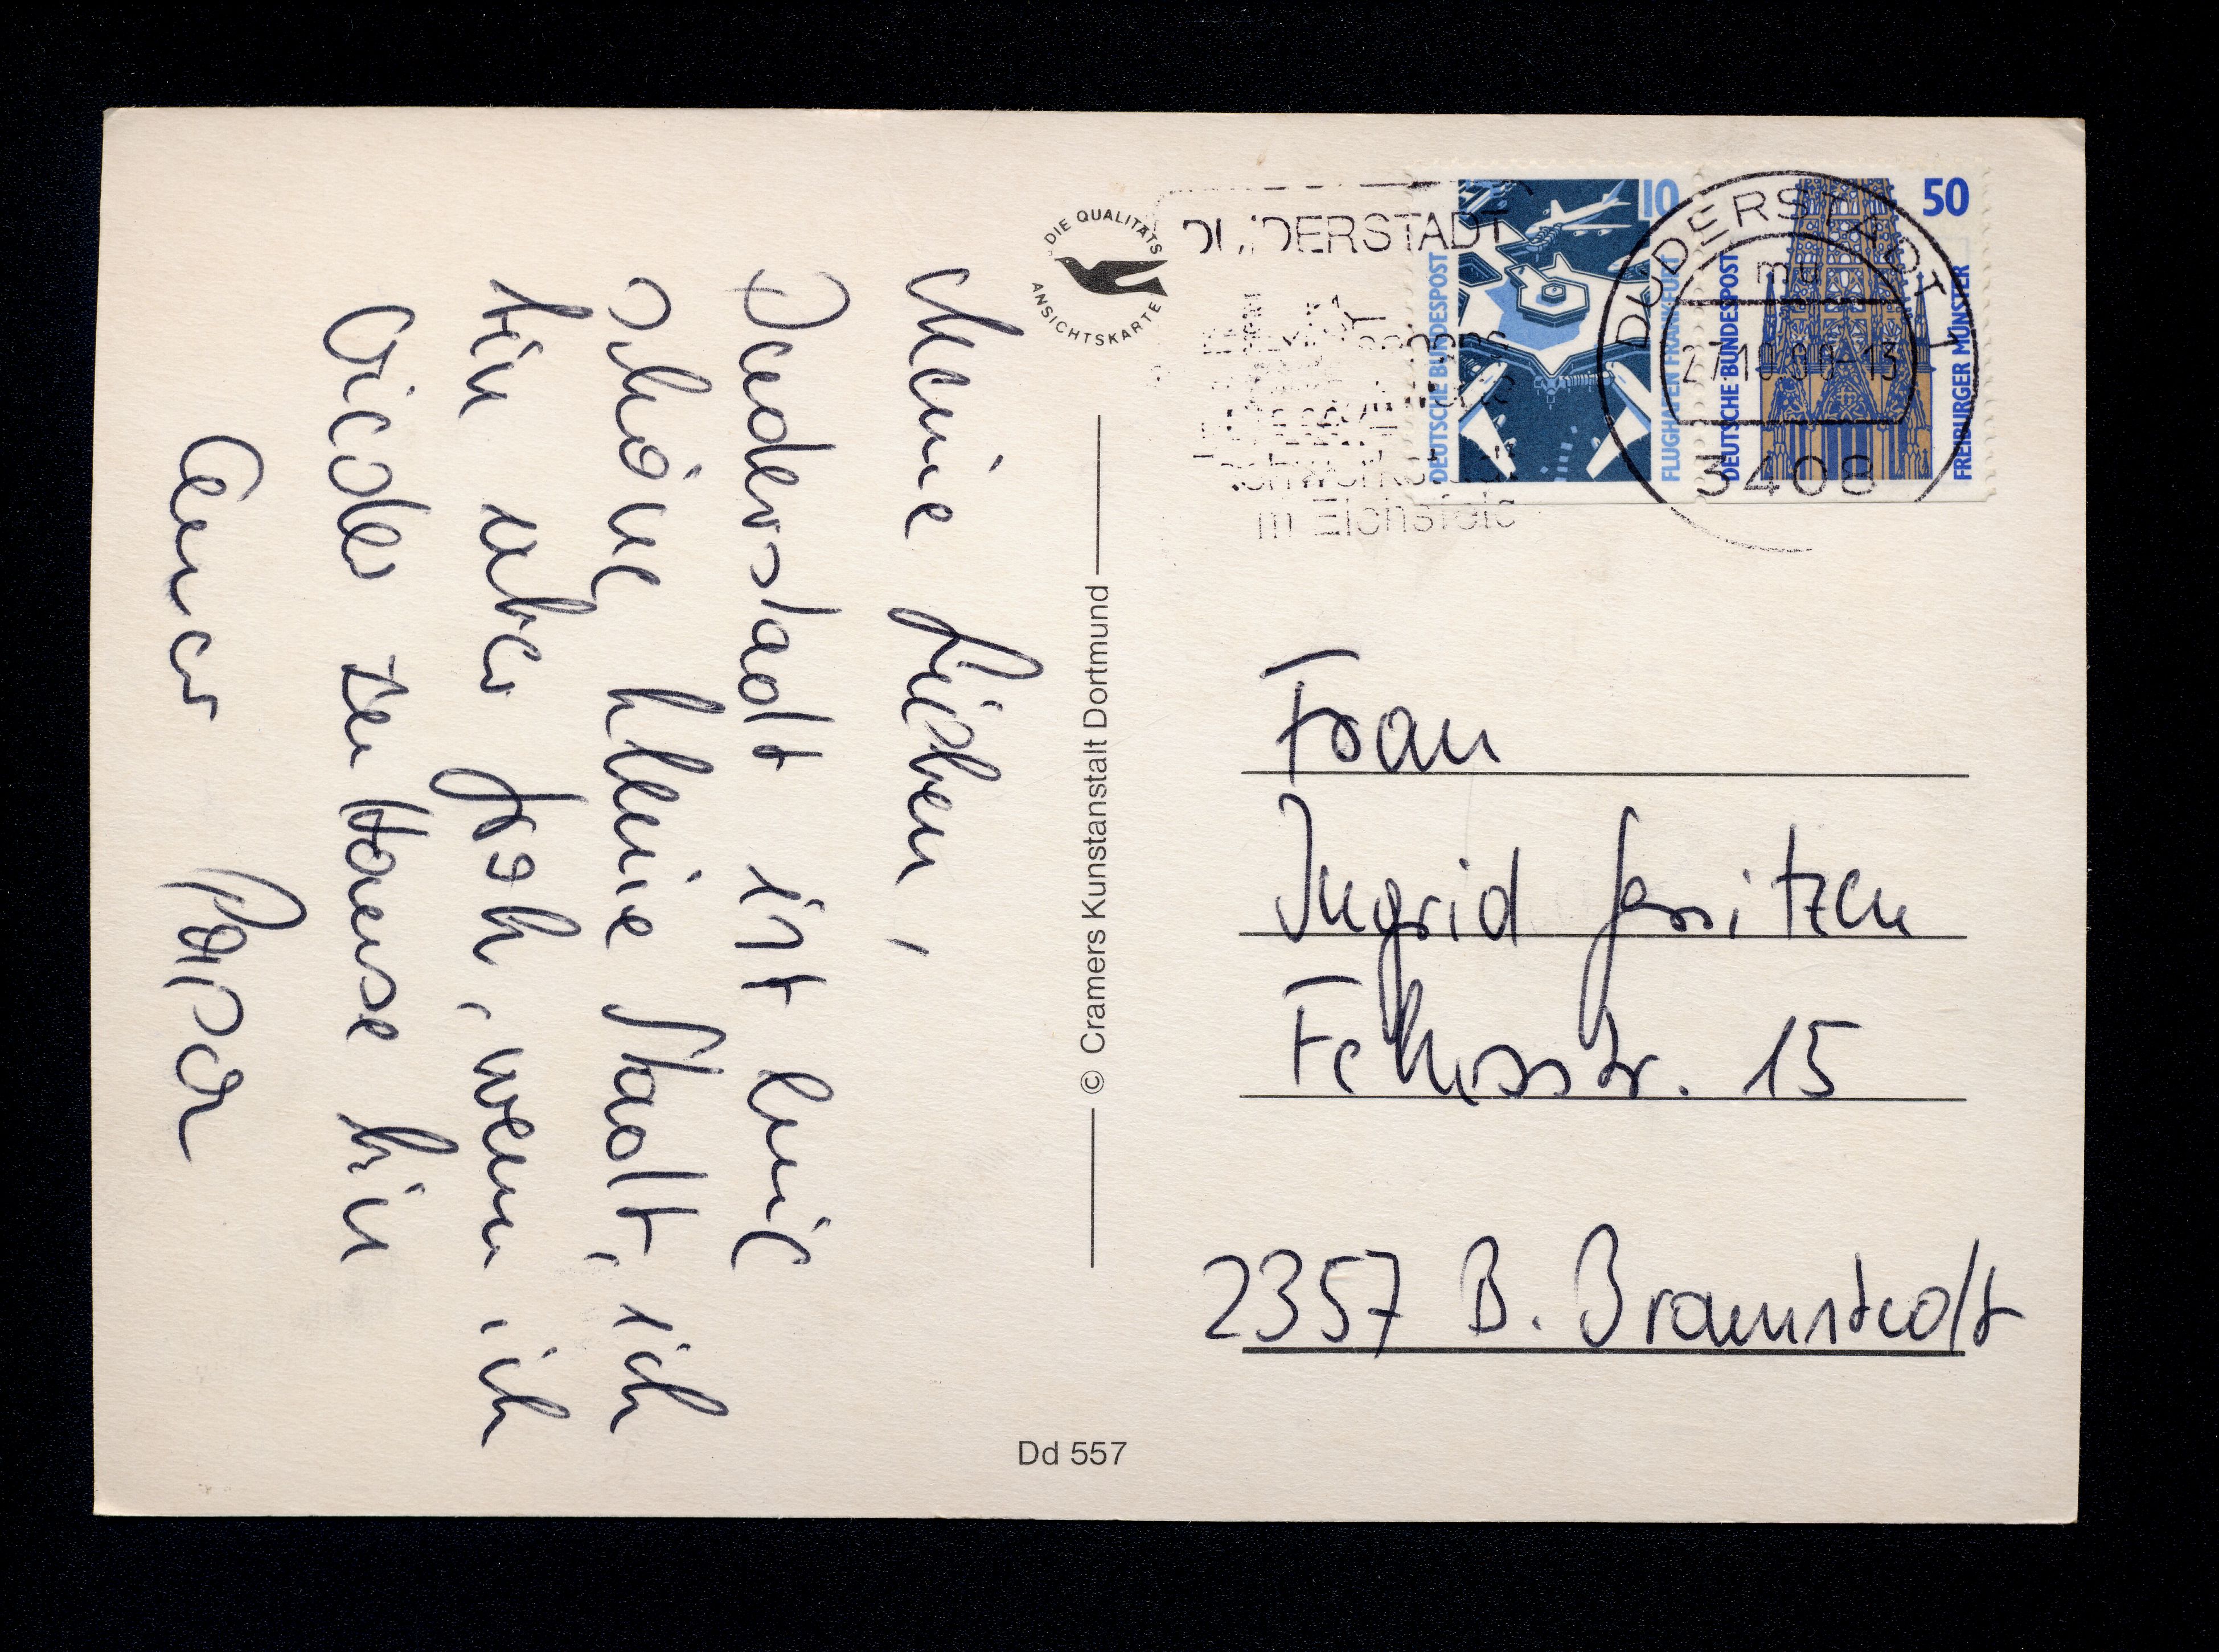 Meine Lieben,
Duderstadt ist eine
schöne kleine Stadt, ich
bin aber froh, wenn ich
wieder zu Hause bin
Euer Papa
DIE QUALITÄTS
ANSICHTSKARTE
© Cramers Kunstanstalt Dortmund
Dd 557
DUDERSTADT
im Eichsfeld
10
DEUTSCHE BUNDESPOST
FLUGHAFEN FRANKFURT
50
DEUTSCHE BUNDESPOST
FREIBURGER MÜNSTER
DUDERSTADT 1
3408
Frau
Ingrid Gerritzen
15
2357 B. Bramstedt